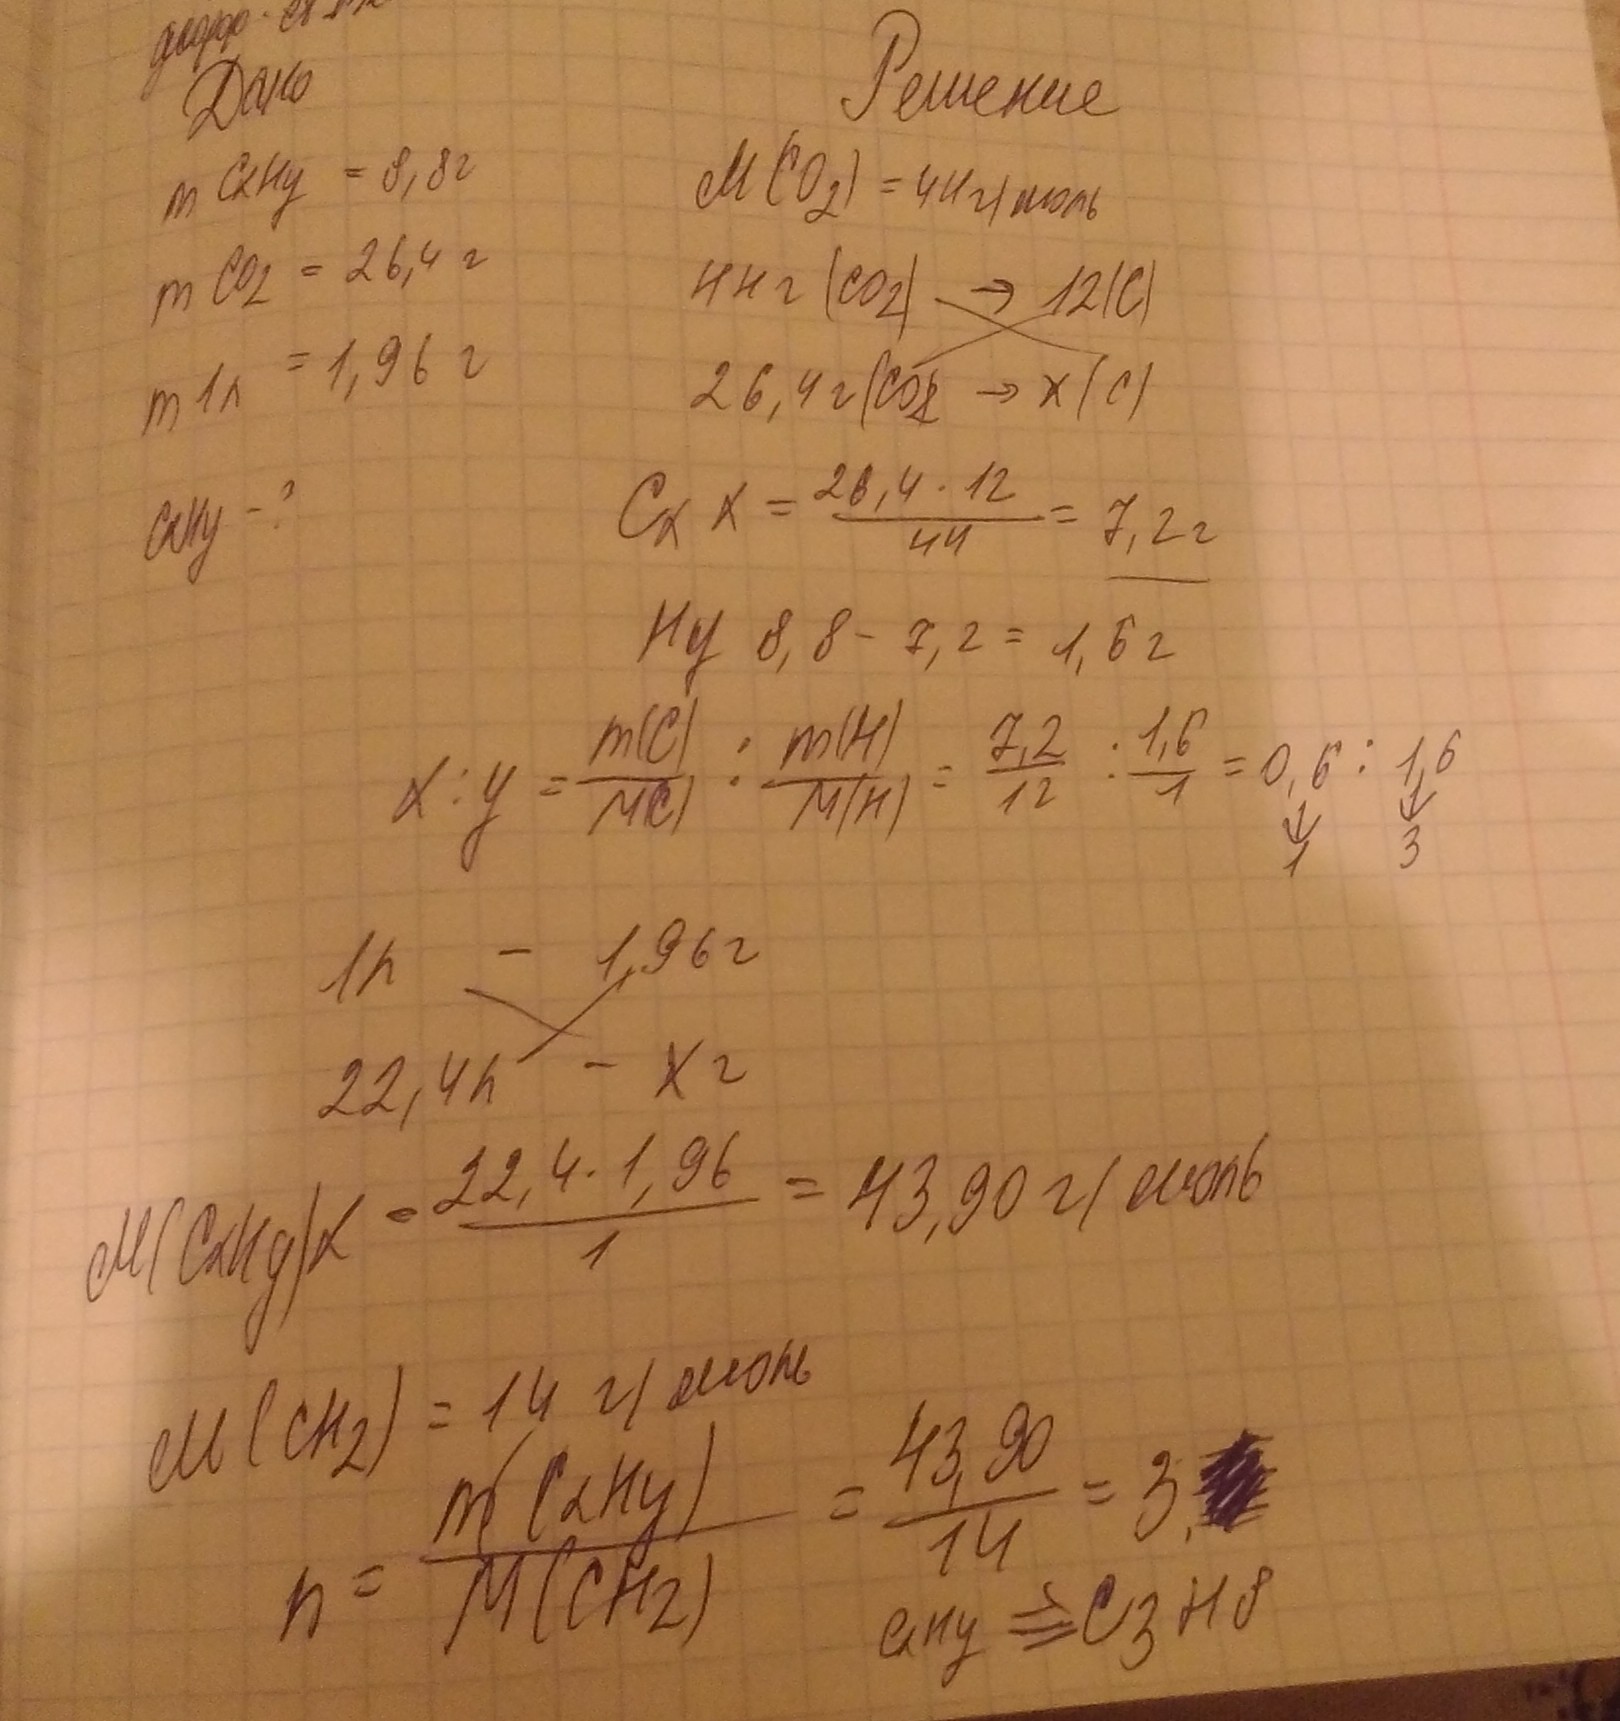 Дано
Решение
m CxHy = 8,8г
M(CO2) = 44г/моль
m CO2 = 26,4 г
44г (CO2) → 12(C)
m 1л = 1,96 г
26,4г(CO2 → x(C)
CxHy - ?
Cx x = 26,4 · 12 / 44 = 7,2г
Hy 8,8 - 7,2 = 1,6г
x : y = m(C) / M(C) : m(H) / M(H) = 7,2 / 12 : 1,6 / 1 = 0,6 : 1,6
↓ ↓
1 3
1л - 1,96г
22,4л - x г
M(CxHy)x = 22,4 · 1,96 / 1 = 43,90 г/моль
M(CH2) = 14 г/моль
n = m(CxHy) / M(CH2) = 43,90 / 14 = 3,
CxHy => C3H8